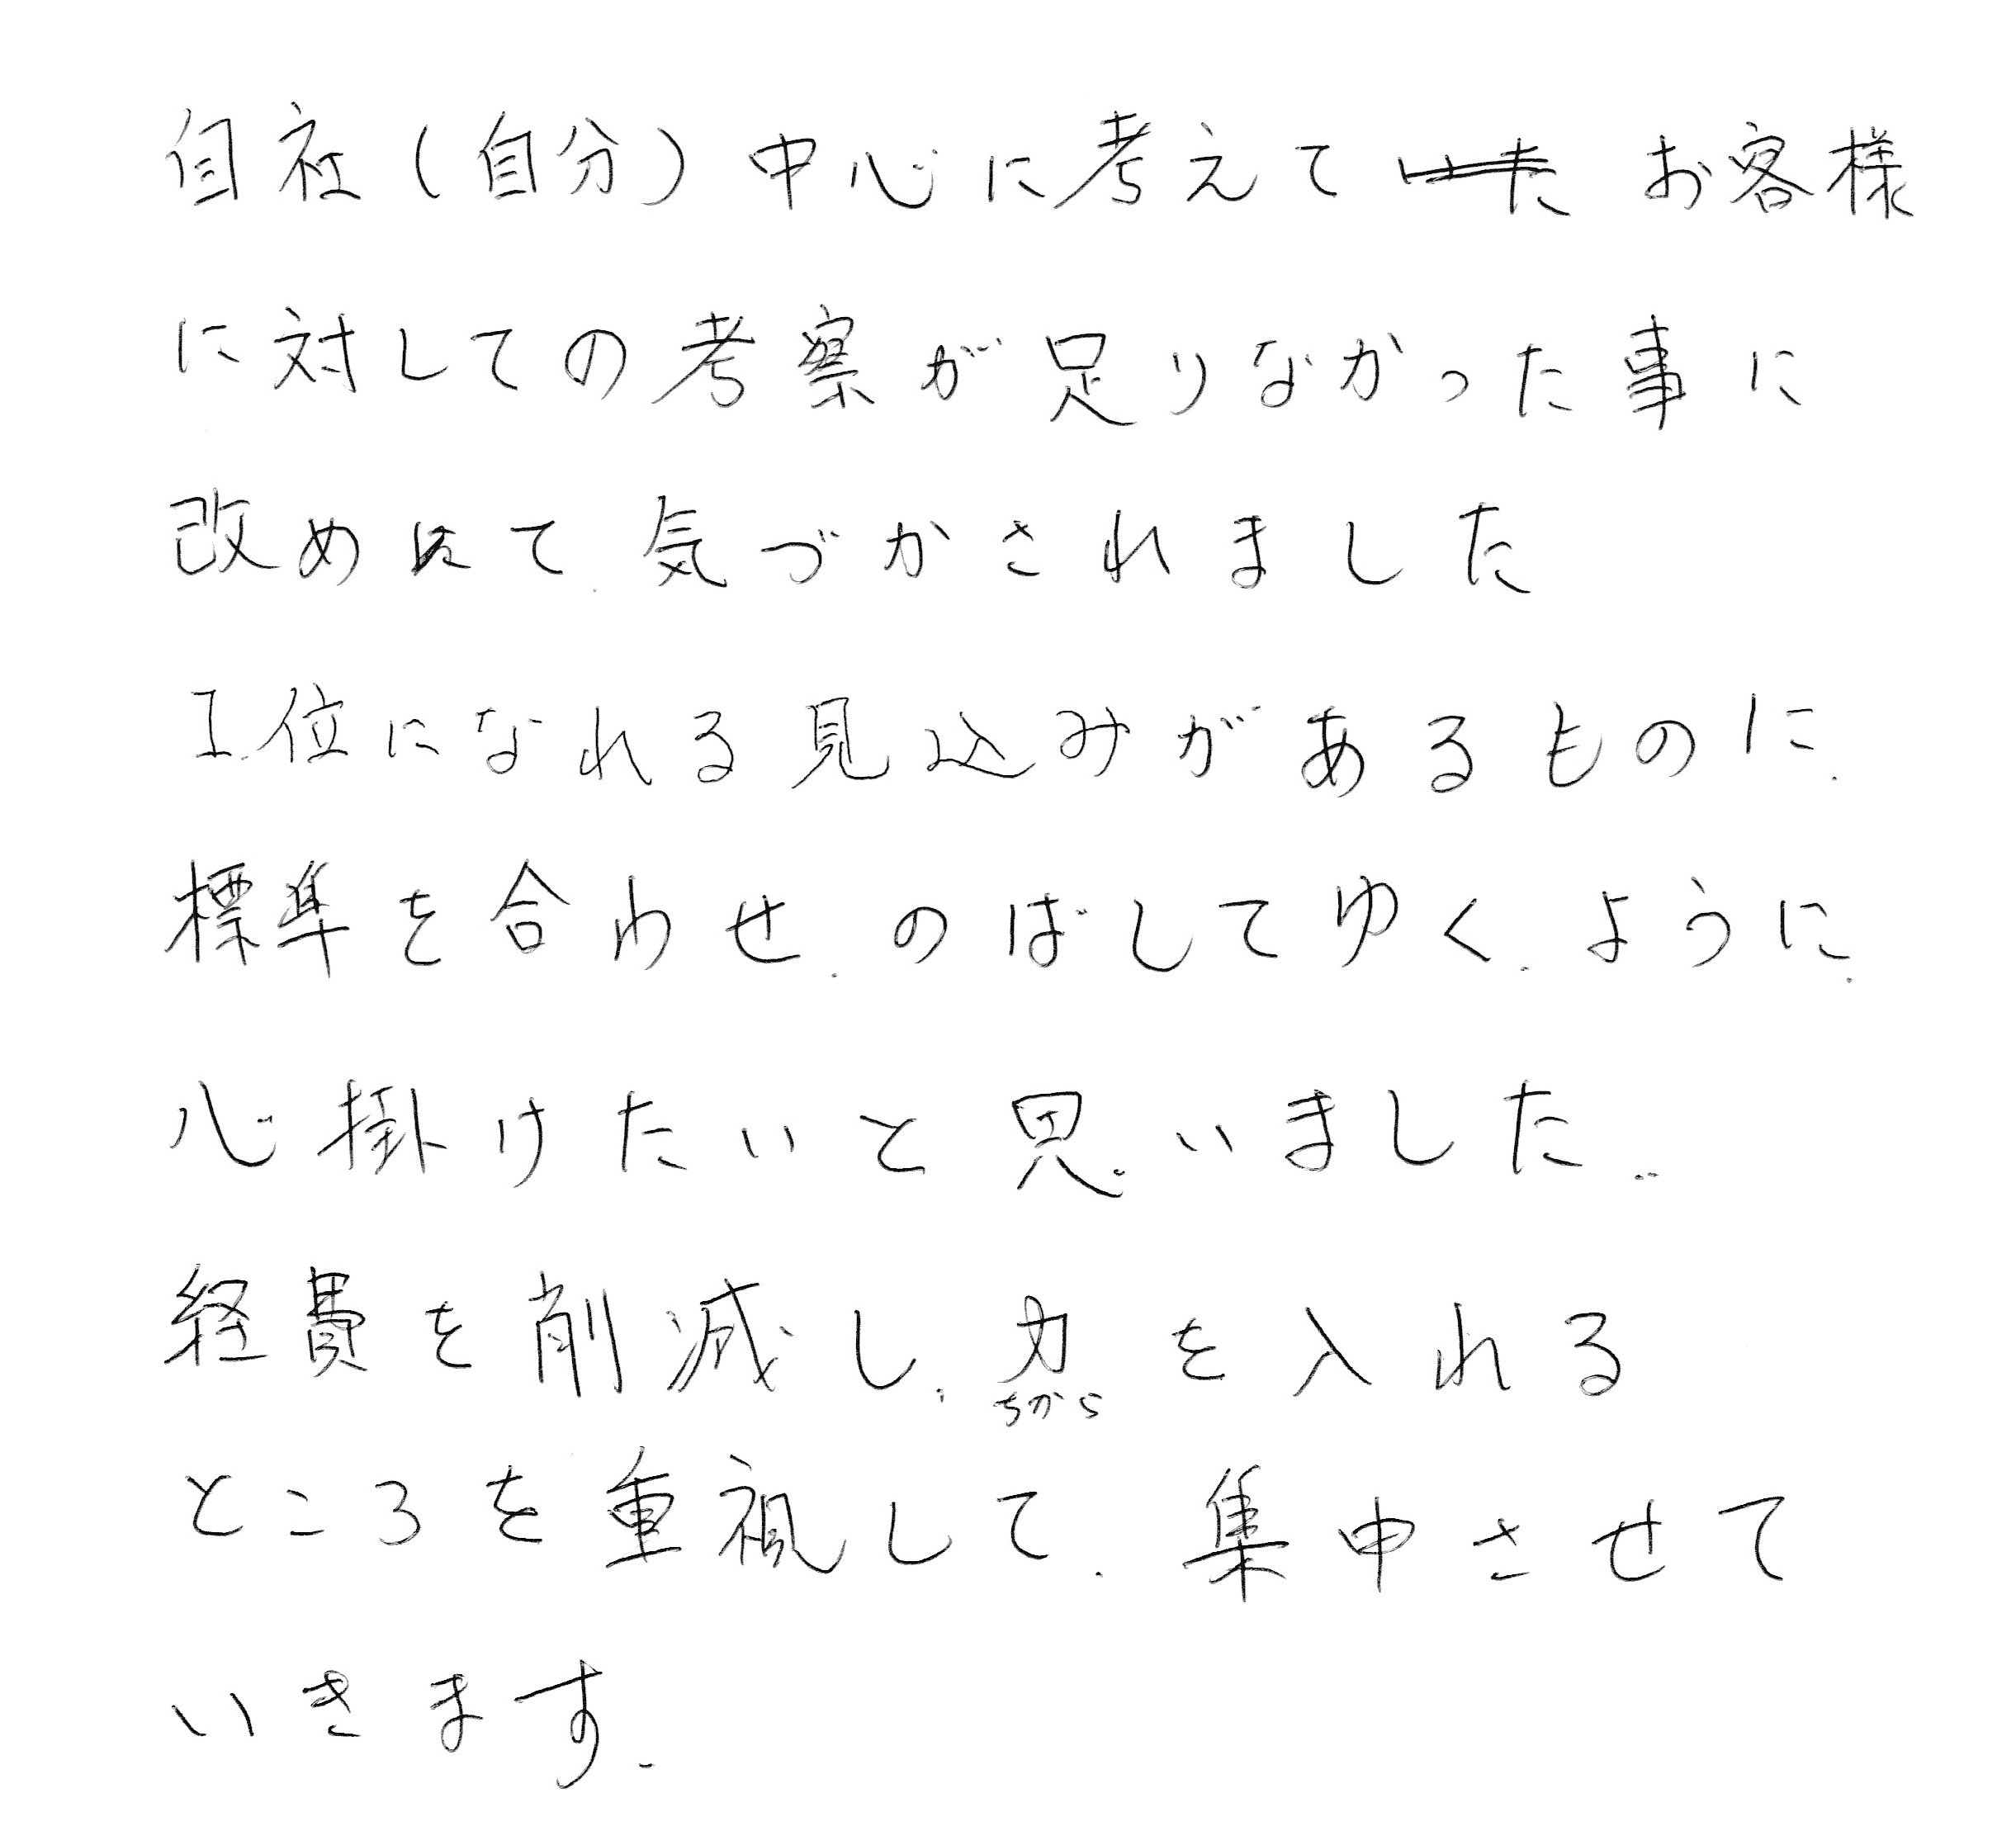 自社(自分)中心に考えて お客様
に対しての考察が足りなかった事に
改めて.気づかされました
1.位になれる見込みがあるものに.
標準を合わせ.のばしてゆく.ように.
心掛けたいと思いました..
経費を削減し.力を入れる
ちから
ところを重視して.集中させて
いきます.